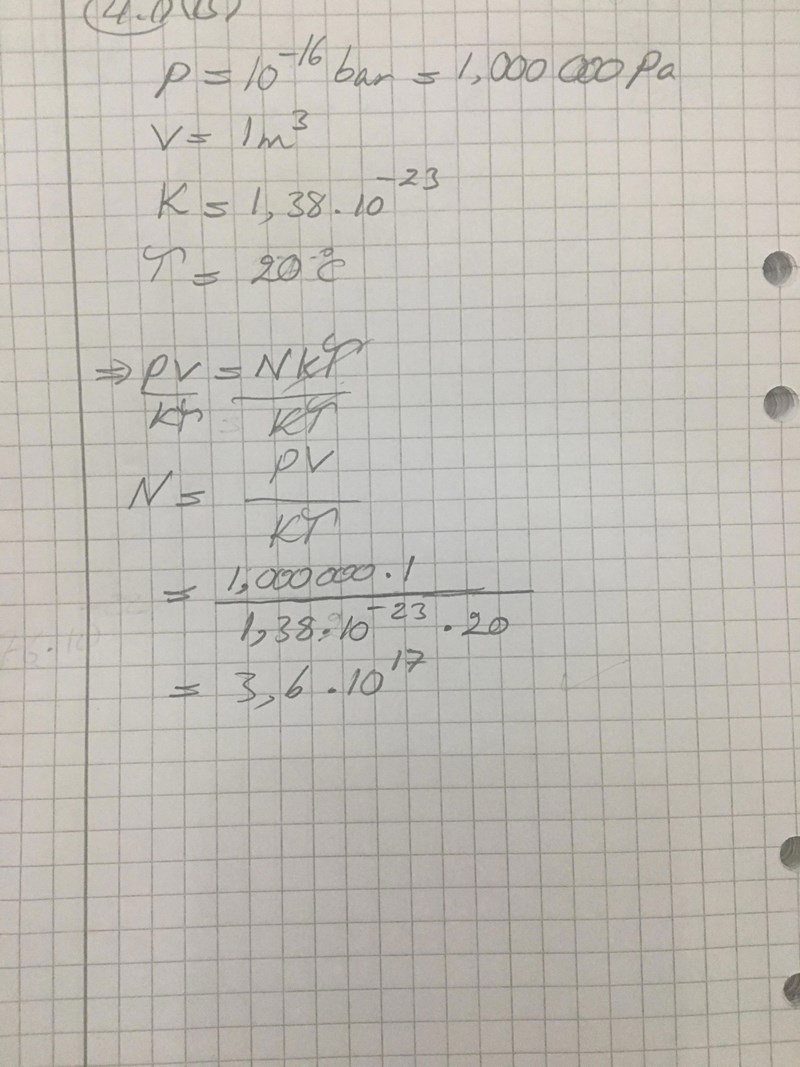 4.1 (B)
P = 10^-16 bar = 1,000 000 Pa
V = 1m^3
K = 1,38 . 10^-23
T = 20°C
=> PV/KT = NKT/KT
N = PV/KT
= 1,000 000 . 1 / 1,38 . 10^-23 . 20
= 3,6 . 10^17